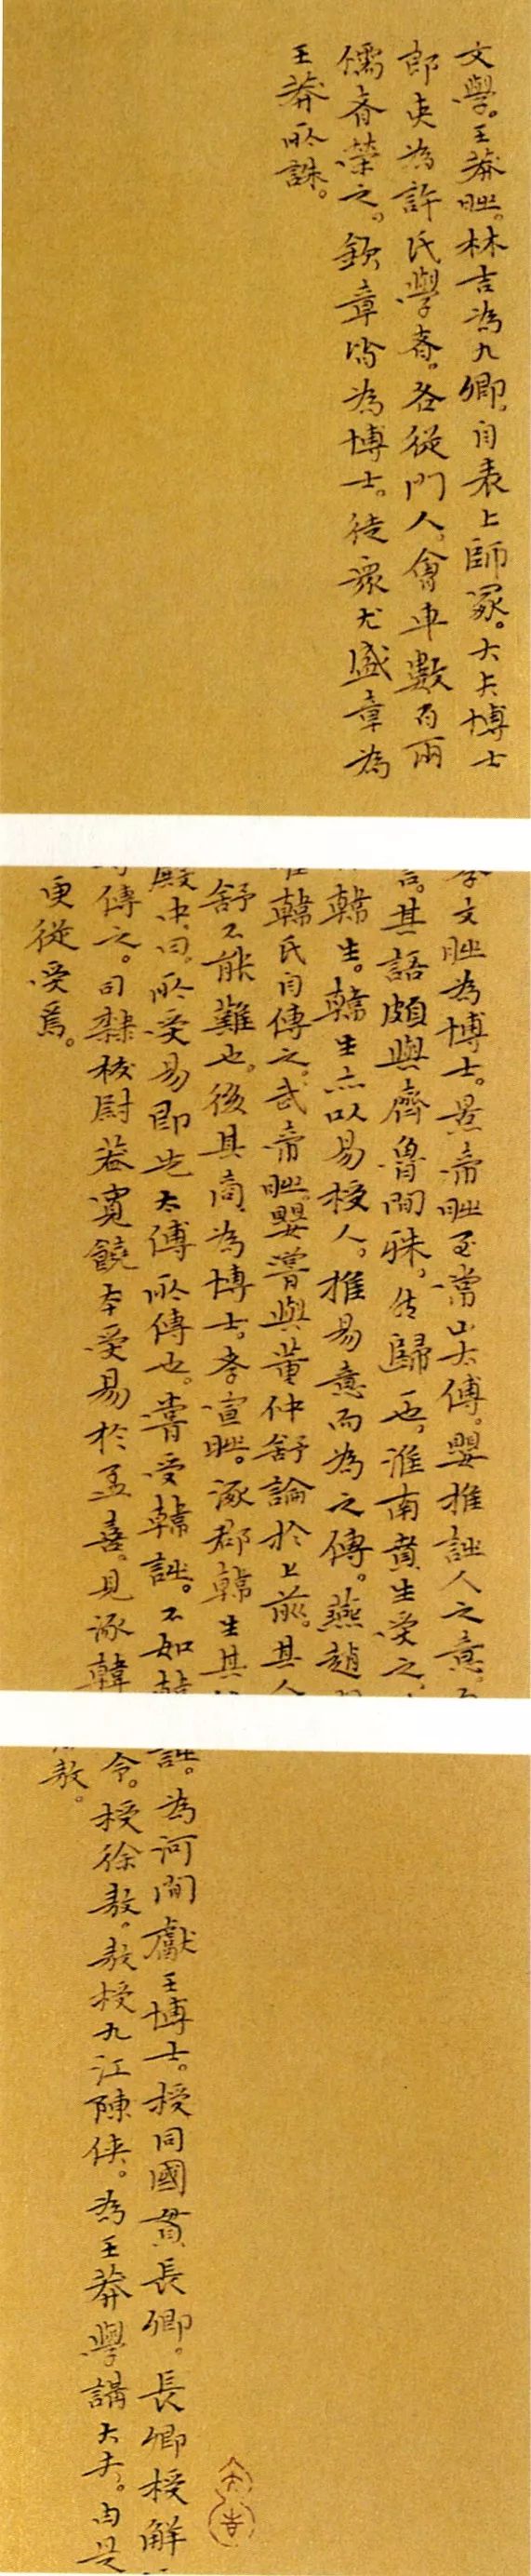 文學。王莽時。林吉為九卿。自表上師冢。大夫博士
郎吏為許氏學者。各從門人。會車數百兩
儒者榮之。欽章皆為博士。徒眾尤盛章為
王莽所誅。
孝文時為博士。景帝時至常山太傅。嬰推詩人之意。
言。其語頗與齊魯間殊。然歸一也。淮南賁生受之。
韓生。韓生亦以易授人。推易意而為之傳。燕趙
唯韓氏自傳之。武帝時。嬰嘗與董仲舒論於上前。其人
舒不能難也。後其商為博士。孝宣時。涿郡韓生其
殿中。曰。所受易即先太傅所傳也。嘗受韓詩。不如韓
傳之。司隸校尉蓋寬饒本受易於孟喜。見涿韓
更從受焉。
詩。為河間獻王博士。授同國貫長卿。長卿授解
令。授徐敖。敖授九江陳俠。為王莽學講大夫。由是
敖。